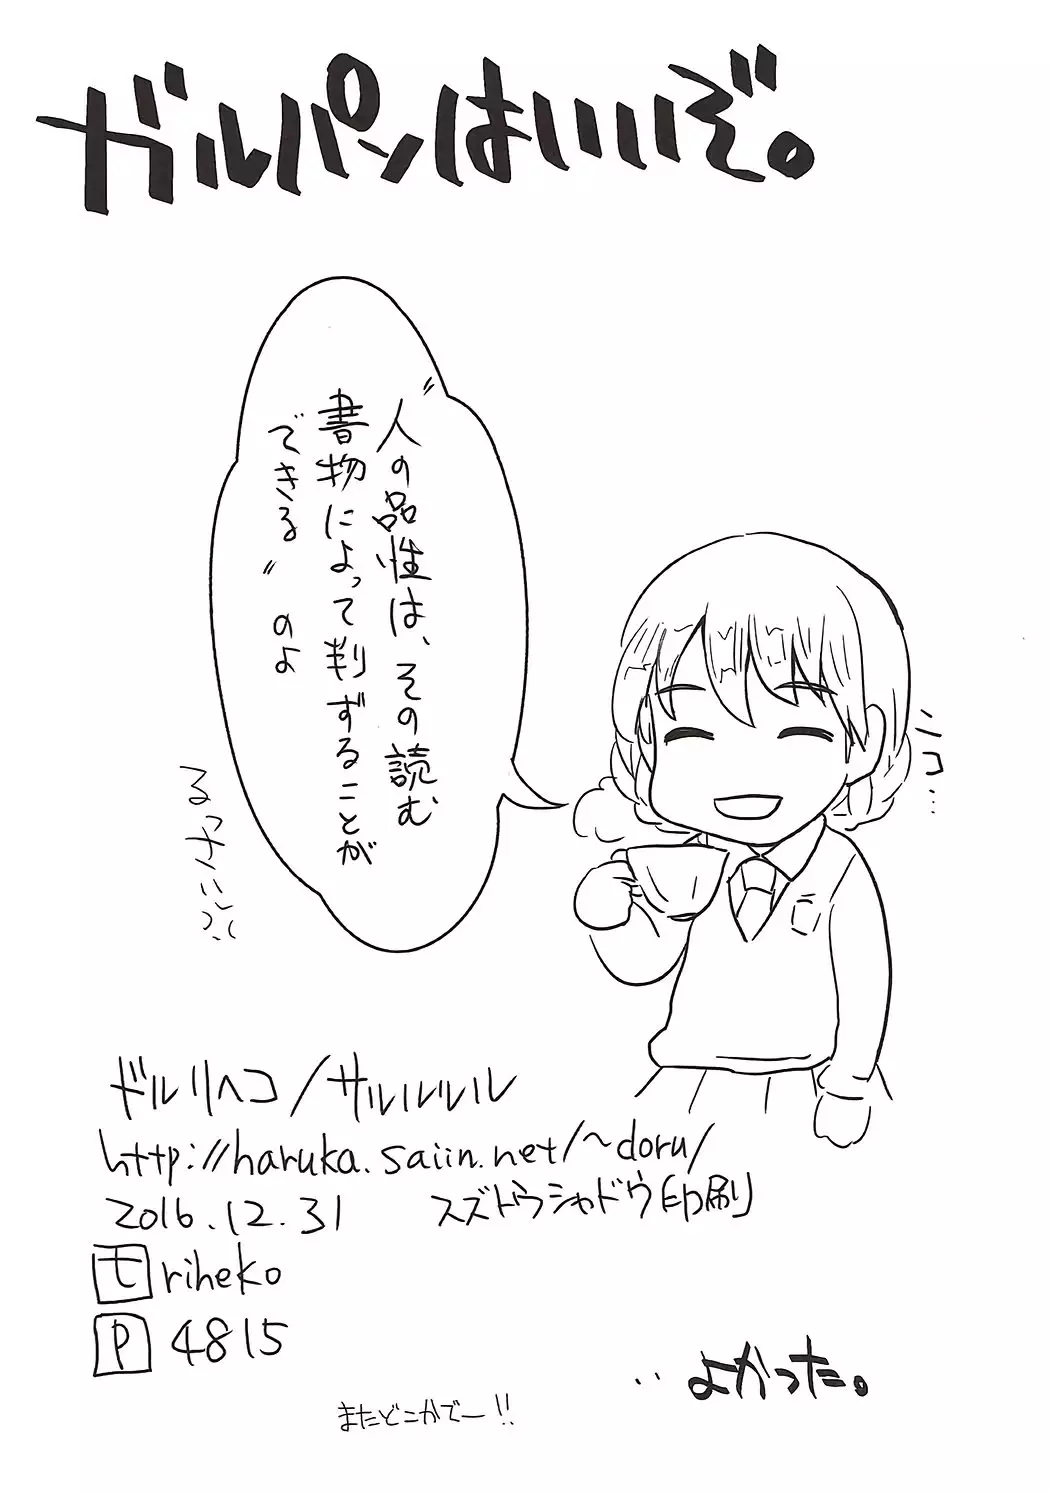 ガルパンはいいぞ。
〝人の品性は、その読む
書物によって判ずることが
できる〟のよ
ニコ…
るっさいッ
ドルリヘコ/サルルルル
http://haruka.saiin.net/~doru/
2016.12.31 スズトウシャドウ印刷
モ riheko
P 4815
‥よかった。
まただこかでー!!